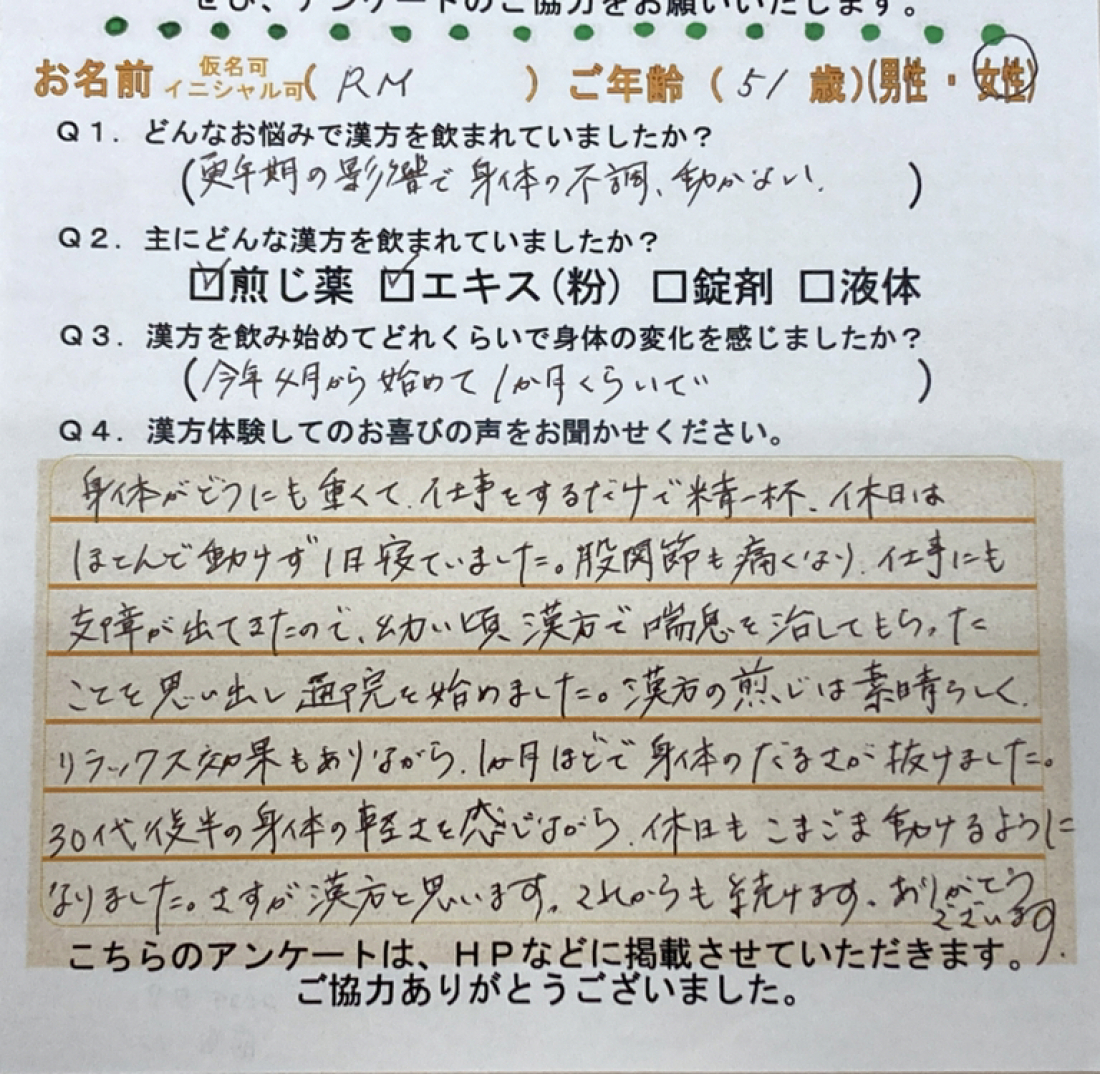 ぜひ、アンケートのご協力をお願いいたします。
お名前 仮名可 イニシャル可 ( RM ) ご年齢 ( 51 歳)(男性・女性)
Q1. どんなお悩みで漢方を飲まれていましたか?
(更年期の影響で身体の不調、動かない. )
Q2. 主にどんな漢方を飲まれていましたか?
☑煎じ薬 ☑エキス(粉) □錠剤 □液体
Q3. 漢方を飲み始めてどれくらいで身体の変化を感じましたか?
(今年4月から始めて1か月くらいで )
Q4. 漢方体験してのお喜びの声をお聞かせください。
身体がどうにも重くて、仕事をするだけで精一杯、休日は
ほとんで動けず1日寝ていました。股関節も痛くなり、仕事にも
支障が出てきたので、幼い頃漢方で喘息を治してもらった
ことを思い出し通院を始めました。漢方の煎じは素晴らしく、
リラックス効果もありながら、1か月ほどで身体のだるさが抜けました。
30代後半の身体の軽さを感じながら、休日もこまごま動けるように
なりました。さすが漢方と思います。これからも続けます。ありがとう
ございます。
こちらのアンケートは、HPなどに掲載させていただきます。
ご協力ありがとうございました。